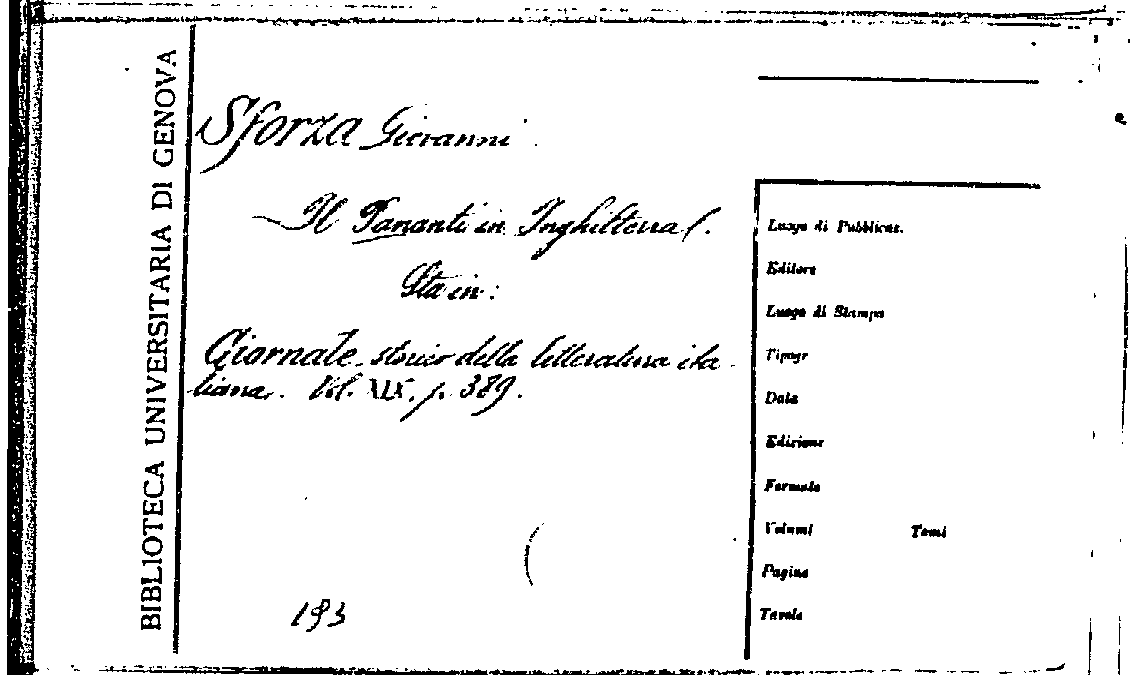 BIBLIOTECA UNIVERSITARIA DI GENOVA
Sforza Giovanni
Il Pananti in Inghilterra (.
Sta in:
Giornale storico della letteratura ita-
liana. Vol. XIX, p. 389.
193
Luogo di Pubblicaz.
Editore
Luogo di Stampa
Tipogr
Data
Edizione
Formato
Volumi Tomi
Pagine
Tavole